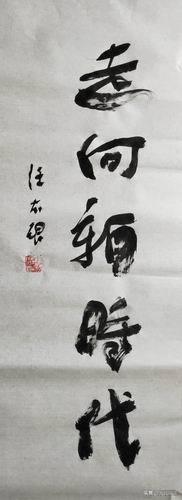 走向新時代